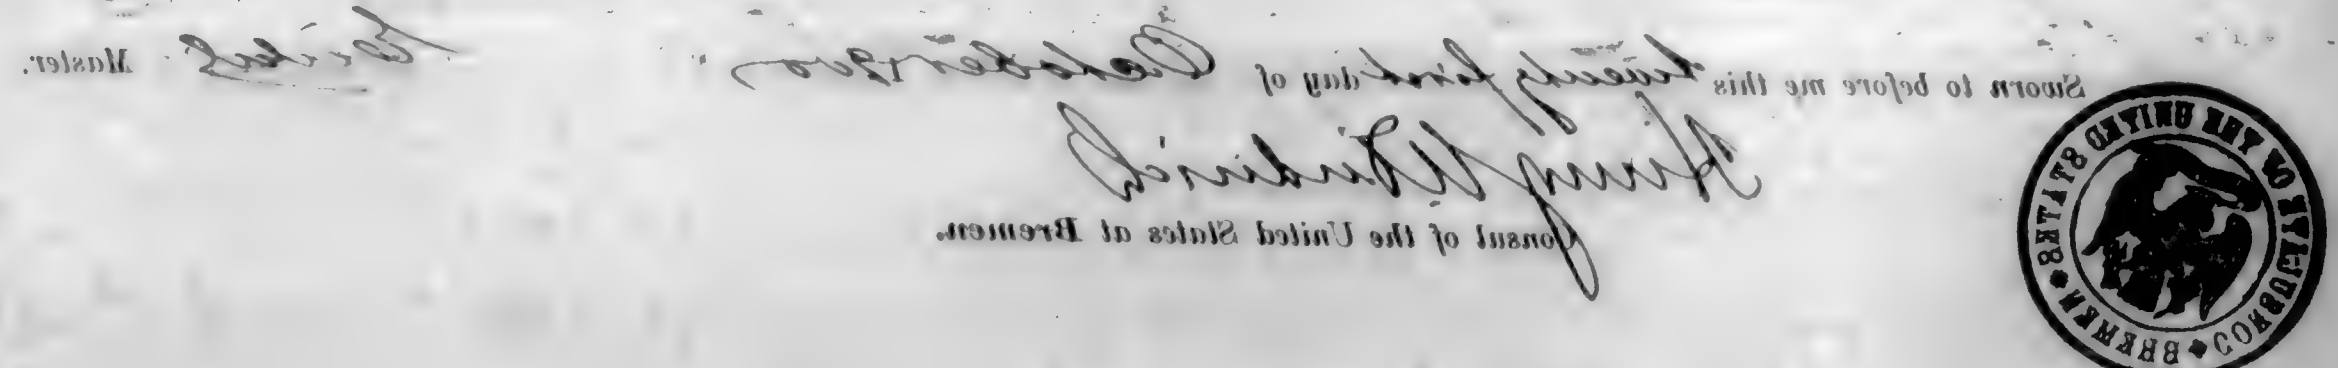 Sworn to before me this twenty first day of October 1900
Master.
Henry W. Diederich
Consul of the United States at Bremen.
CONSULATE OF THE UNITED STATES * BREMEN *